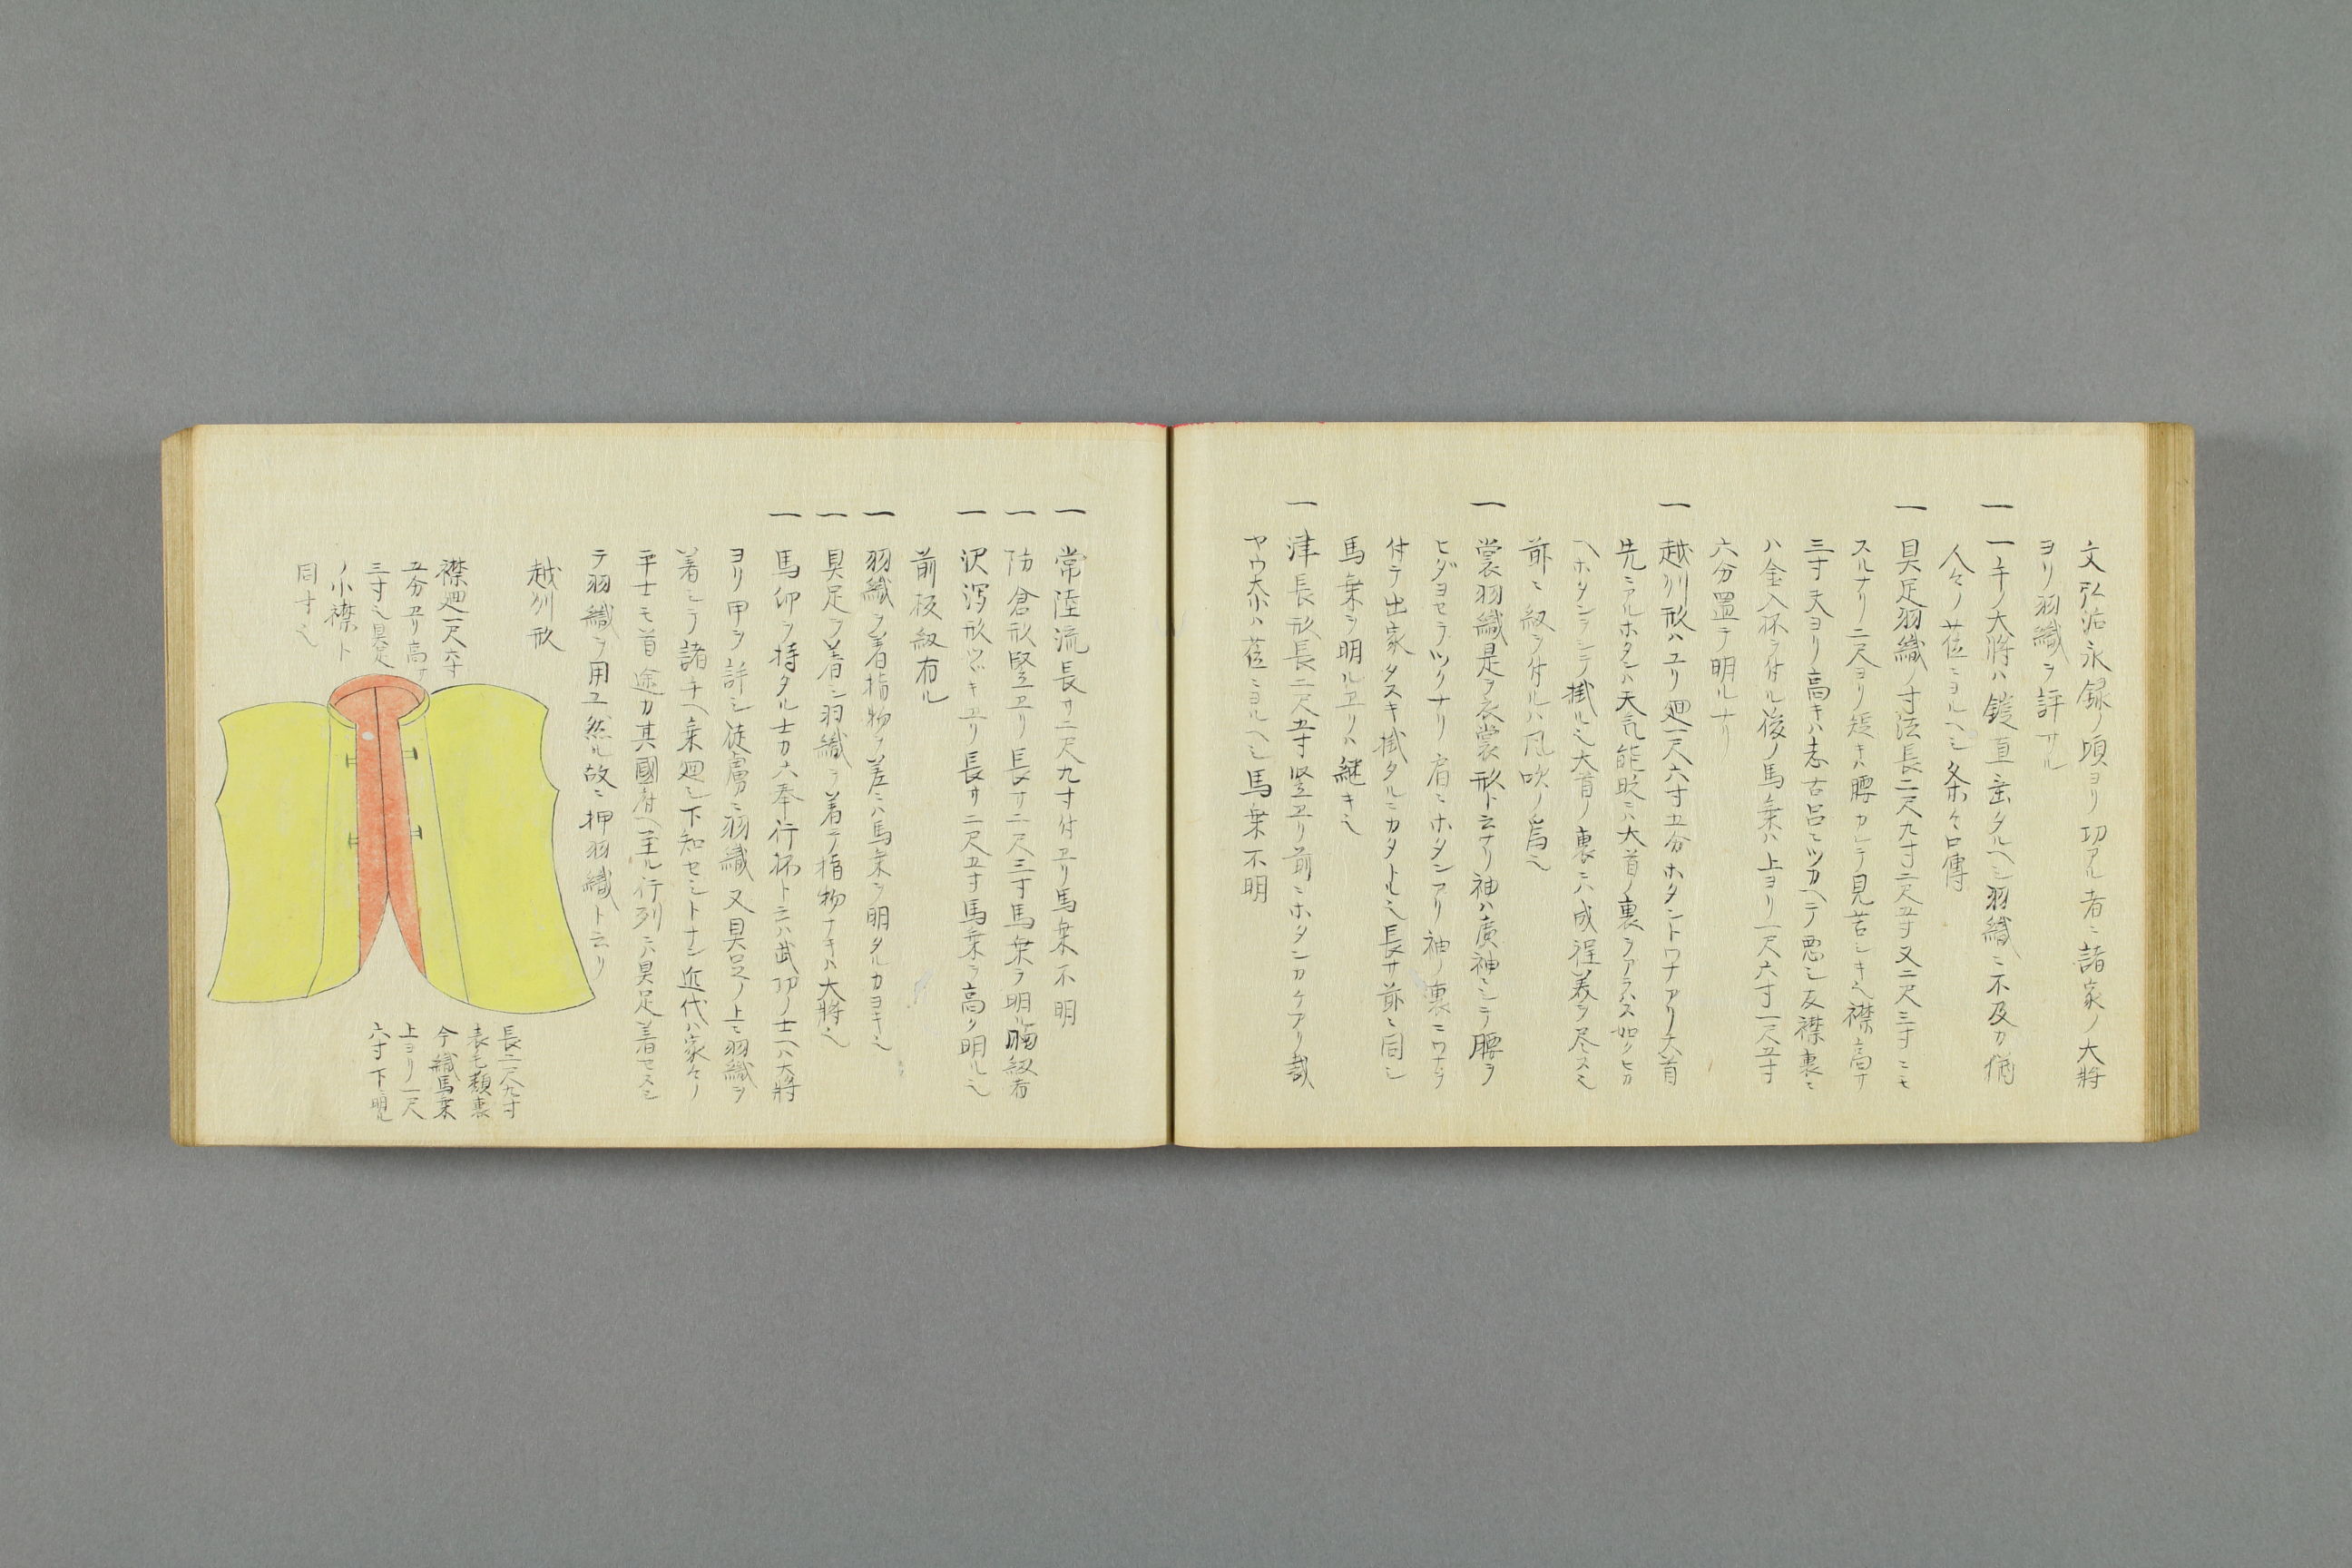 文弘治永録ノ頃ヨリ功アル者ニ諸家ノ大将
ヨリ羽織ヲ許サル
一 一手ノ大将ハ鎧直垂タルヘシ羽織ニ不及カ猶
人々ノ位ニヨルヘシ条々口傳
一 具足羽織ノ寸法長二尺九寸二尺五寸又二尺三寸ニモ
スルナリ二尺ヨリ短キハ腰カレテ見苦シキ也襟ノ高サ
三寸夫ヨリ高キハ志古呂ニツカヘテ悪シ友襟裏ニ
ハ金入杯ヲ付ル後ノ馬乗ハ上ヨリ一尺六寸一尺五寸
六分置テ明ルナリ
一 越州形ハヱリ廻一尺六寸五分ホタントワナアリ大首
先ニアルホタンハ天気能時ニハ大首ノ裏ヲアラハス如クヒカ
ヘホタンヲシテ掛ル也大首ノ裏ニハ成程美ヲ尽ス也
前ニ紐ヲ付ルハ風吹ノ為也
一 裳羽織是ヲ衣裳形ト云ナリ袖ハ廣袖ニシテ腰ヲ
ヒダヨセヲツクナリ肩ニホタンアリ袖ノ裏ニワナヲ
付テ出家タスキ掛タルニカタトル也長サ前ニ同シ
馬乗ヲ明ルヱリハ継キ也
一 津長形長二尺五寸竪ヱリ前ニホタンカケアリ裁
ヤウ大小ハ位ニヨルヘシ馬乗不明
一 常陸流長サ二尺九寸付ヱリ馬乗不明
一 防倉形竪ヱリ長サ二尺三寸馬乗ヲ明ル胸紐有
一 沢瀉形ツヾキヱリ長サ二尺五寸馬乗ヲ高ク明ル也
前板紐有ル
一 羽織ヲ着指物ヲ差ニハ馬乗ヲ明タルカヨキ也
一 具足ヲ着シ羽織ヲ着テ指物ナキハ大将也
一 馬印ヲ持タル士カ六奉行杯ト云ハ武功ノ士ヘハ大将
ヨリ甲ヲ許シ徒膚ニ羽織又具足ノ上ニ羽織ヲ
着シテ諸手ヘ乗廻シ下知セシトナン近代ハ家々ノ
平士モ首途カ其國府ヘ至ル行列ニハ具足着セスシ
テ羽織ヲ用ユ然ル故ニ押羽織ト云リ
越州形
襟廻一尺六寸
五分ヱリ高サ
三寸也具足
ノ小襟ト
同寸也
長二尺九寸
表毛類裏
今織馬乗
上ヨリ一尺
六寸下明也